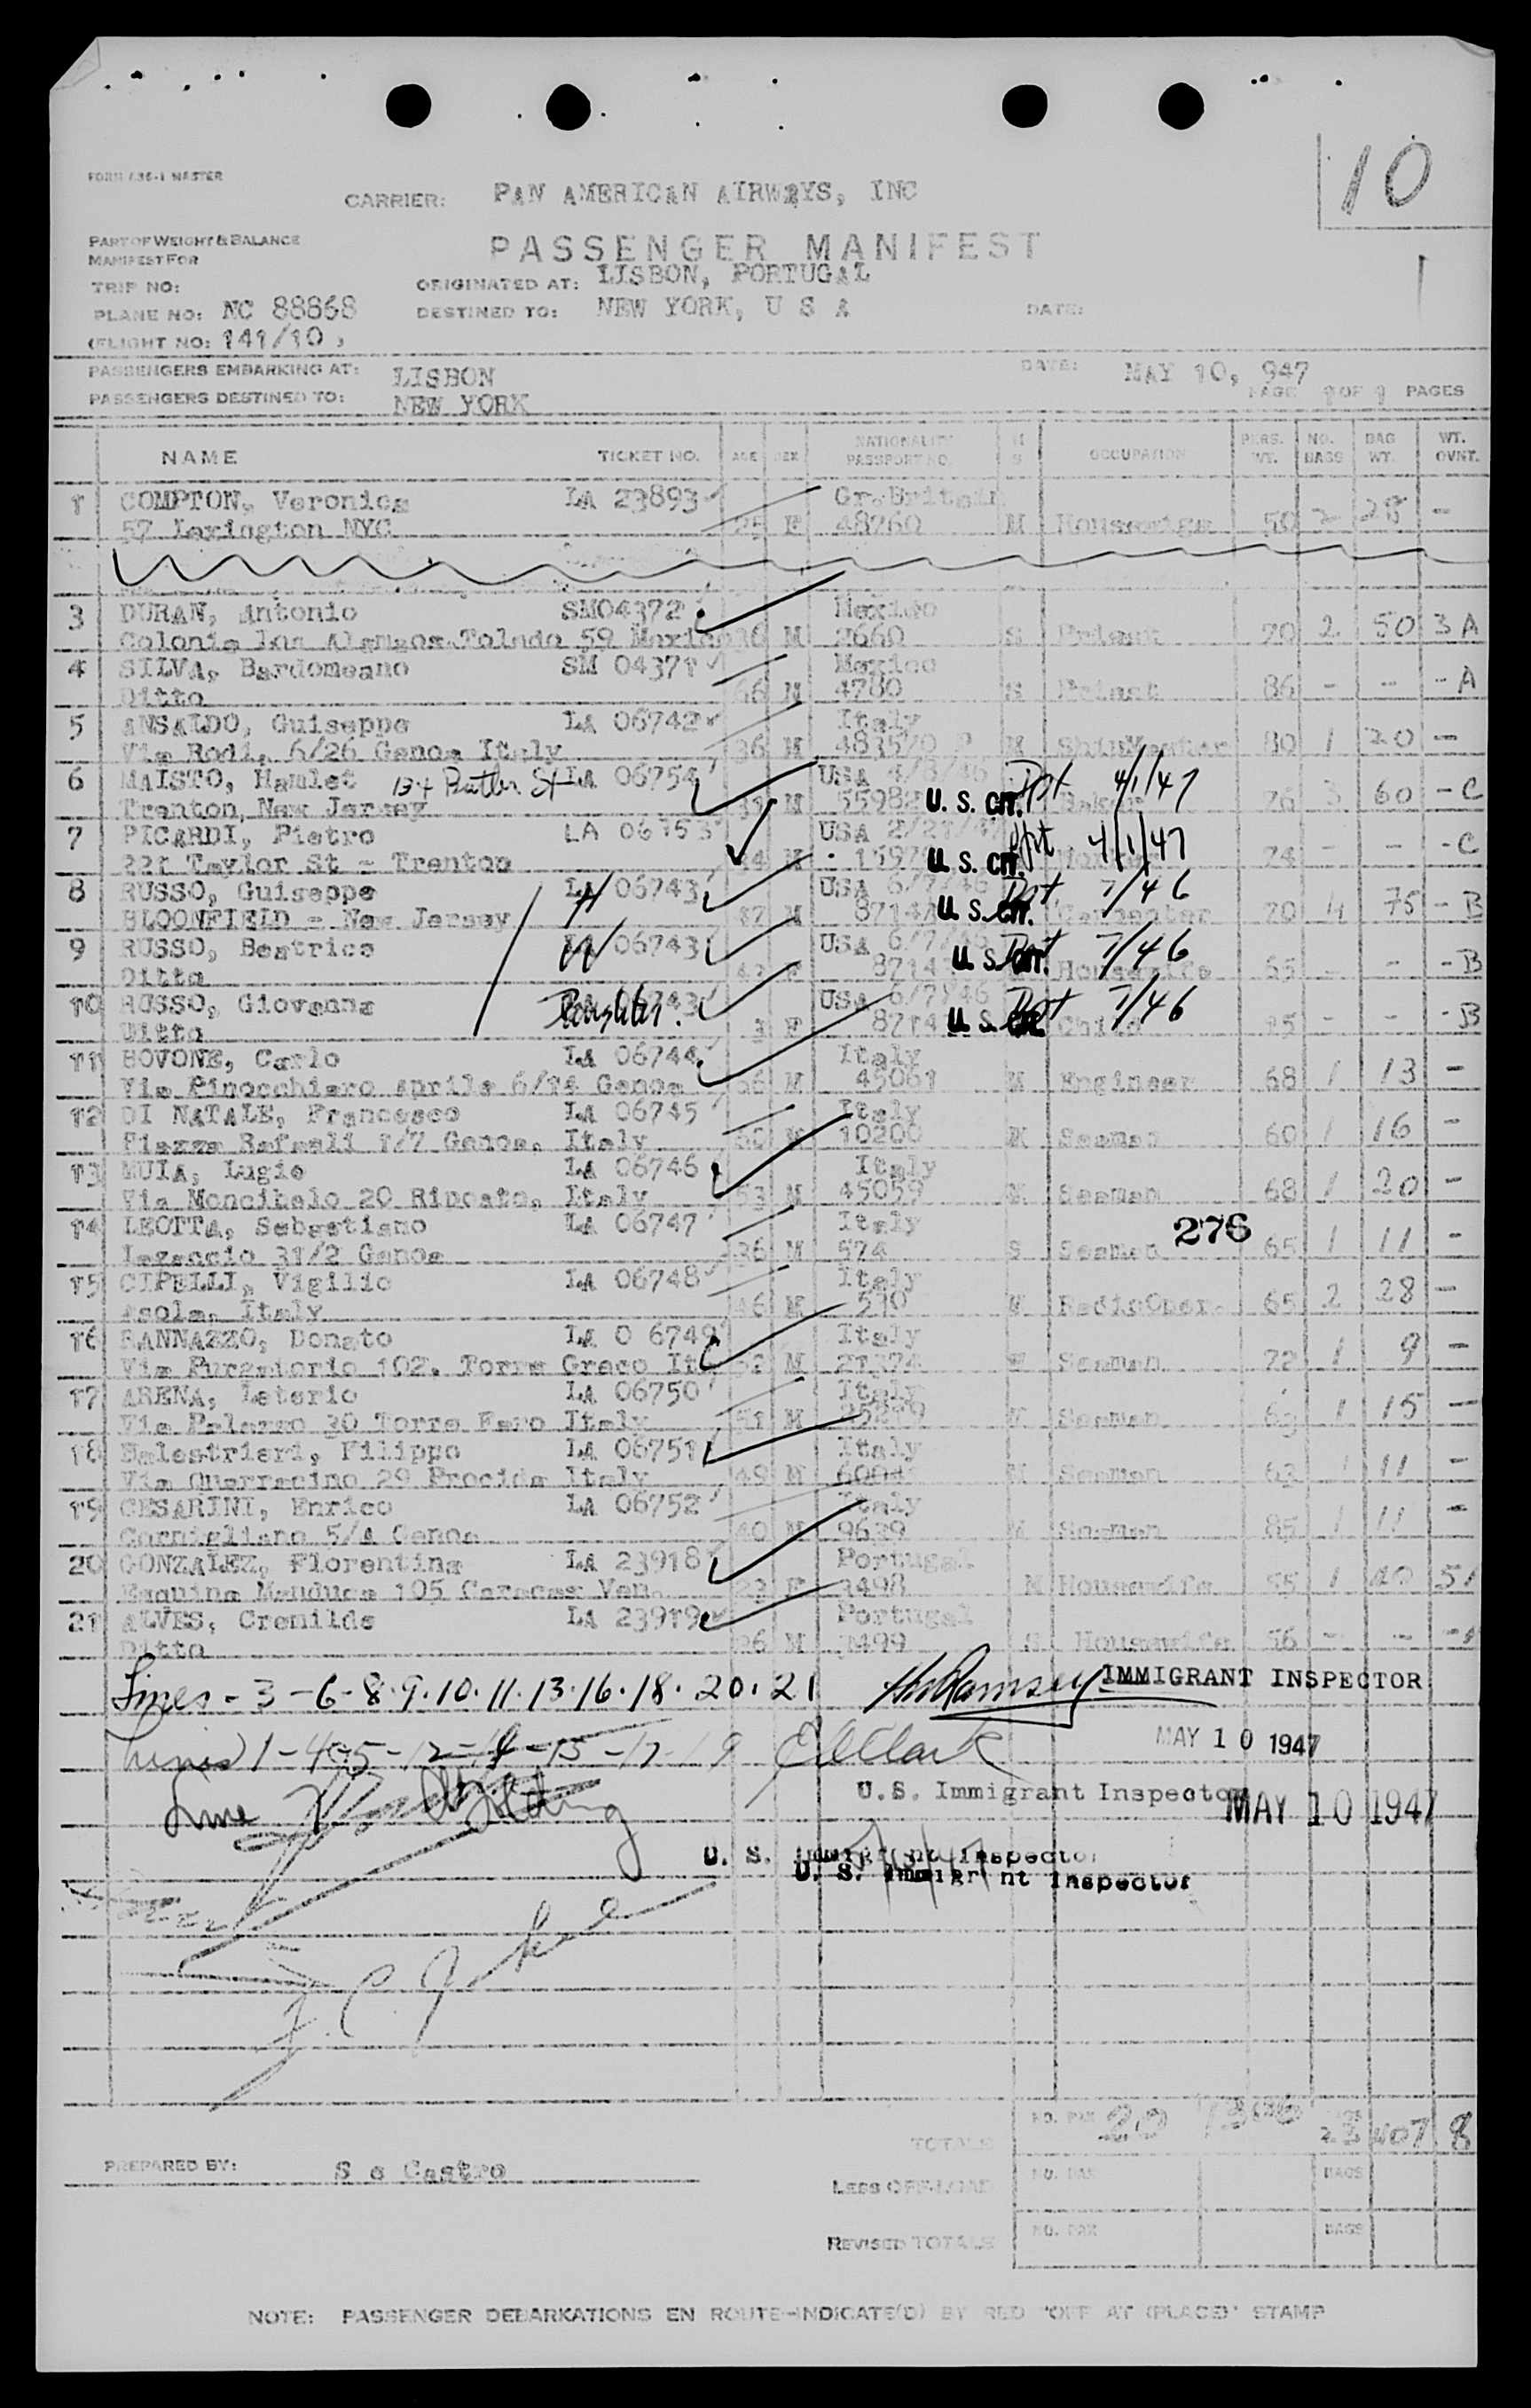 10
FORM 636-1 MASTER
CARRIER: PAN AMERICAN AIRWAYS, INC
PART OF WEIGHT & BALANCE
MANIFEST FOR
PASSENGER MANIFEST
TRIP NO:
ORIGINATED AT: LISBON, PORTUGAL
PLANE NO: NC 88868
DESTINED TO: NEW YORK, U S A
DATE:
(FLIGHT NO: 141/10 )
PASSENGERS EMBARKING AT: LISBON
DATE: MAY 10, 947
PASSENGERS DESTINED TO: NEW YORK
PAGE 1 OF 1 PAGES
NAME TICKET NO. AGE SEX NATIONALITY PASSPORT NO. M S OCCUPATION PERS. WT. NO. BAGS BAG WT. WT. OVNT.
1 COMPTON, Veronica LA 23893 Gr.Britain
57 Lexington NYC 25 F 48260 M Housewife 50 2 28 -
3 DURAN, Antonio SM04372 Mexico
Colonia Los Alamgos.Toledo 59 Mexico 36 M 2660 S Priest 70 2 50 3 A
4 SILVA, Bardomeano SM 04371 Mexico
Ditto 66 M 4780 S Priest 86 - - - A
5 ANSALDO, Guiseppe LA 06742 Italy
Via Rodi, 6/26 Genoa Italy 36 M 483570 P M 80 1 20 -
6 MAISTO, Hamlet 134 Butler St LA 06754 USA 4/8/46 Dpt 4/1/47
Trenton, New Jersey M 55982 U. S. CIT. Baker 76 3 60 - C
7 PICARDI, Pietro LA 06753 USA Dpt 4/1/47
221 Taylor St - Trenton M U. S. CIT. 74 - - - C
8 RUSSO, Guiseppe H LA 06743 USA 6/7/46 Dpt 7/46
BLOONFIELD - New Jersey 47 M U. S. CIT. Carpenter 70 4 75 - B
9 RUSSO, Beatrice W LA 06743 USA 6/7/46 Dpt 7/46
Ditto F U. S. CIT. Housewife 65 - - - B
10 RUSSO, Giovanna Daughter. USA 6/7/46 Dpt 7/46
Ditto 3 F U. S. CIT. Child 15 - - - B
11 BOVONE, Carlo LA 06744 Italy
Via Pinocchiaro aprile 6/14 Genoa 56 M 45061 M Engineer 68 1 13 -
12 DI NATALE, Francesco LA 06745 Italy
Piazza Rafaeli 1/7 Genoa, Italy M 10200 M Seaman 60 1 16 -
13 MUIA, Lugio LA 06746 Italy
Via Moncibelo 20 Riposto, Italy 53 M 45059 M Seaman 68 1 20 -
14 LEOTTA, Sebastiano LA 06747 Italy 276
Lagaccio 31/2 Genoa 36 M 574 S Seaman 65 1 11 -
15 CIPELLI, Vigilio LA 06748 Italy
Asola, Italy 46 M 510 M RadioOper. 65 2 28 -
16 SANNAZZO, Donato LA O 6749 Italy
Via Purgatorio 102. Torre Greco It. 52 M 27374 M Seaman 72 1 9 -
17 ARENA, Leterio LA 06750 Italy
Via Palazzo 30 Torre Faro Italy 51 M M Seaman 63 1 15 -
18 Balestrieri, Filippo LA 06751 Italy
Via Guarracino 29 Procida Italy 49 M M Seaman 63 1 11 -
19 CESARINI, Enrico LA 06752 Italy
Cornigliano 5/A Genoa 40 M 9639 M Seaman 85 1 11 -
20 GONZALEZ, Florentina LA 23918 Portugal
Esquina Manduca 105 Caracas Ven. 23 F 3498 M Housewife 55 1 40 51
21 ALVES, Cremilde LA 23919 Portugal
Ditto 26 M 3499 S Housewife 56 - - -
Lines - 3 - 6 - 8 . 9 . 10 . 11 . 13 . 16 . 18 . 20 . 21 Ramsey IMMIGRANT INSPECTOR
Lines 1 - 4 - 5 - 12 - 14 - 15 - 17 - 19 Clark MAY 10 1947
Line
U.S. Immigrant Inspector MAY 10 1947
U. S. Immigrant Inspector
U. S. Immigrant Inspector
TOTALS NO. PAX 20 BAGS 23 407 8
PREPARED BY: S o Castro
LESS OFF-LOAD NO. PAX BAGS
REVISED TOTALS NO. PAX BAGS
NOTE: PASSENGER DEBARKATIONS EN ROUTE-INDICATE(D) BY RED "OFF AT (PLACE)" STAMP